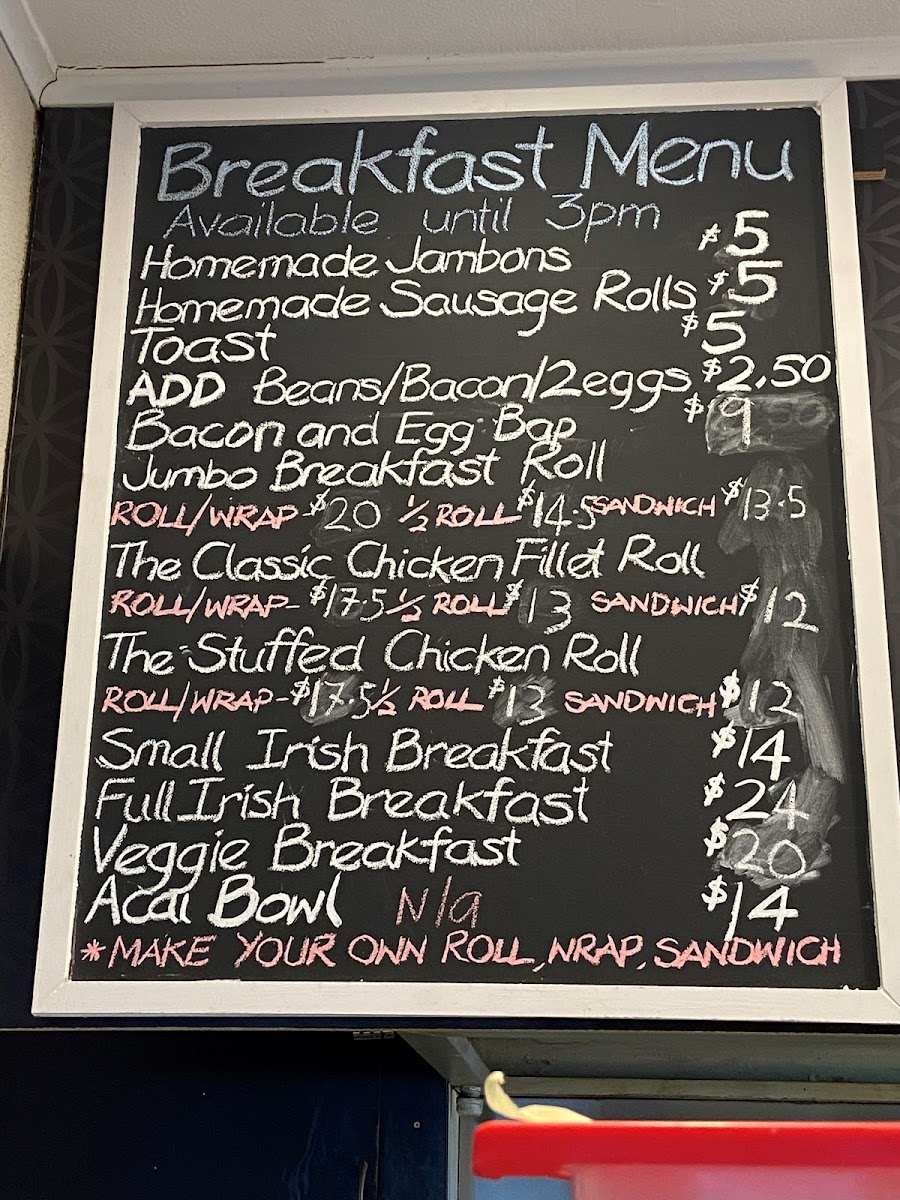 Breakfast Menu
Available until 3pm
Homemade Jambons $5
Homemade Sausage Rolls $5
Toast $5
ADD Beans/Bacon/2eggs $2.50
Bacon and Egg Bap $9
Jumbo Breakfast Roll
ROLL/WRAP-$20 ½ ROLL $14.5 SANDWICH $13.5
The Classic Chicken Fillet Roll
ROLL/WRAP-$17.5 ½ ROLL $13 SANDWICH $12
The Stuffed Chicken Roll
ROLL/WRAP-$17.5 ½ ROLL $13 SANDWICH $12
Small Irish Breakfast $14
Full Irish Breakfast $24
Veggie Breakfast $20
Acai Bowl N/a $14
*MAKE YOUR OWN ROLL, WRAP, SANDWICH